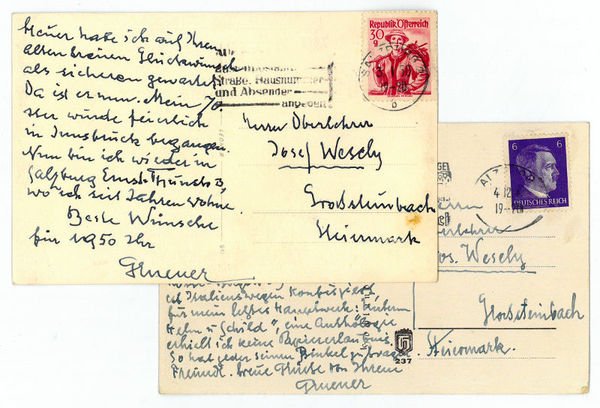 heuer habe ich auf Ihren
alten treuen Glückwunsch
als sicheren gewartet.
Da ist er nun. Mein 70
wurde feierlich
in Innsbruck begangen.
Nun bin ich wieder in
Salzburg Ernst
wo ich seit Jahren wohne.
Beste Wünsche
für 1950 Ihr
Gruener
Straße, Hausnummer
und Absender
angeben
Republik Österreich
30
g
Herrn Oberlehrer
Josef Wesely
Grosssteinbach
Steiermark
für mein letztes Hauptwerk:
Helm u Schild", eine Anthologie
erhielt ich keine Papiererlaubnis.
So hat jeder seinen Binkel zu tragen
Freundl. treue Grüße von Ihrem
Gruener
6 6
DEUTSCHES REICH
4.12
19
Wesely
Grosssteinbach
Steiermark.
237